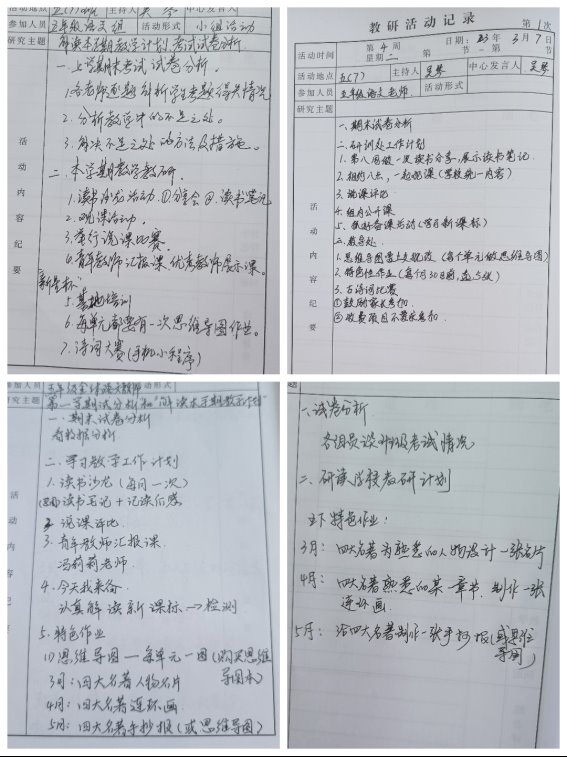 活动地点 五(7)班 主持人 吴琴
参加人员 五年级语文组 活动形式 小组活动
研究主题 解读本学期教学计划、考试试卷分析
活动内容纪要
一、上学期期末考试试卷分析。
1.各老师逐题解析学生考题得失情况
2.分析教学中的不足之处。
3.解决不足之处的方法及措施。
二、本学期教学教研。
1.读书沙龙活动。①分享会②读书笔记
2.观课活动。
3.举行说课比赛。
4.青年教师汇报课、优秀教师展示课。
新课标
5.基地培训
6.每单元都要有一次思维导图作业。
7.诗词大赛(手机小程序)
教研活动记录 第1次
活动时间 第4周 星期二 日期:23年3月7日 第 节-第 节
活动地点 五(7) 主持人 吴琴 中心发言人 吴琴
参加人员 五年级语文老师 活动形式
研究主题
活动内容纪要
一、期末试卷分析
二、研训处工作计划
1.第八周做一次读书分享,展示读书笔记.
3.说课评比
4.组内公开课
三、教导处
1.思维导图要上规范(每个单元做思维导图)
3.古诗词比赛
参加人员 五年级全体语文教师 活动形式
研究主题 "第一学期试卷分析和"解读本学期教学计划"
活动内容纪要
一、期末试卷分析
看数据分析
二、学习教学工作计划
1.读书沙龙(每周一次)
读书笔记+记读后感
2.说课评比
3.青年教师汇报课
冯莉莉老师
4.今天我来备
认真解读新课标→检测
5.特色作业
(1)思维导图—每单元一图(购买思维导图本)
3月:四大名著人物名片
4月:四大名著连环画
5月:四大名著手抄报(或思维导图)
题
一、试卷分析
各组员谈班级考试情况
二、研读学校教研计划
特色作业:
3月:四大名著为熟悉的人物设计一张名片
4月:四大名著熟悉的某一章节,制作一张连环画
5月:给四大名著制作一张手抄报(或思维导图)